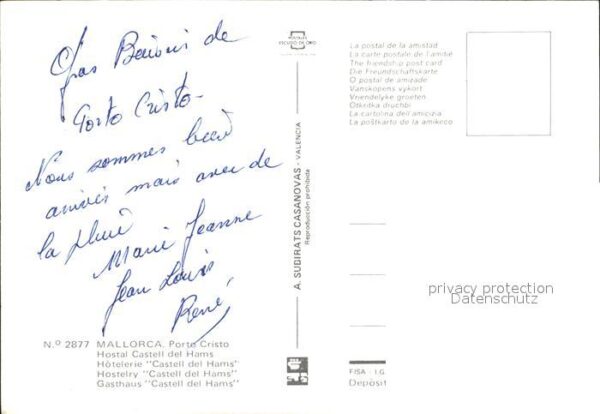 Gros Baisers de
Porto Cristo
Nous sommes bien
arrivés mais avec de
la pluie
Marie Jeanne
Jean Louis
René
N.º 2877 MALLORCA. Porto Cristo
Hostal Castell del Hams
Hôtelerie "Castell del Hams"
Hostelry "Castell del Hams"
Gasthaus "Castell del Hams"
POSTALES
ESCUDO DE ORO
A. SUBIRATS CASANOVAS - VALENCIA
Reproducción prohibida
La postal de la amistad
La carte postale de l'amitié
The friendship post card
Die Freundschaftskarte
O postal de amizade
Vanskopens vykort
Vriendelyke groeten
Otkritka druchbi
La cartolina dell'amicizia
La poštkarto de la amikeco
privacy protection
Datenschutz
FISA - I.G.
Deposit